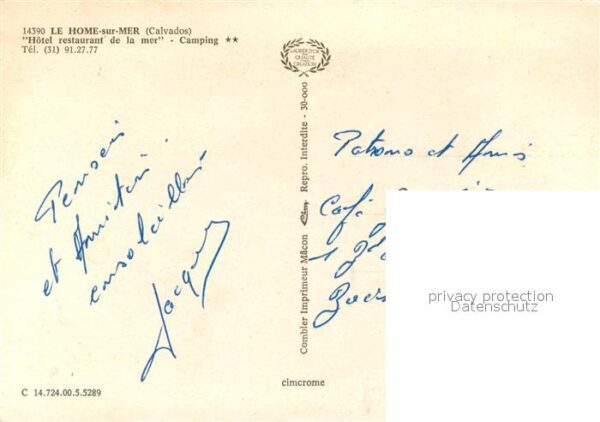 14390 LE HOME-sur-MER (Calvados)
"Hôtel restaurant de la mer" - Camping ★★
Tél. (31) 91.27.77
Pensées
et Amitiés
ensoleillées
Jacques
C 14.724.00.5.5289
Combier Imprimeur Mâcon Repro. Interdite - 30-000
cimcrome
Patrons et Amis
Café
1
privacy protection
Datenschutz